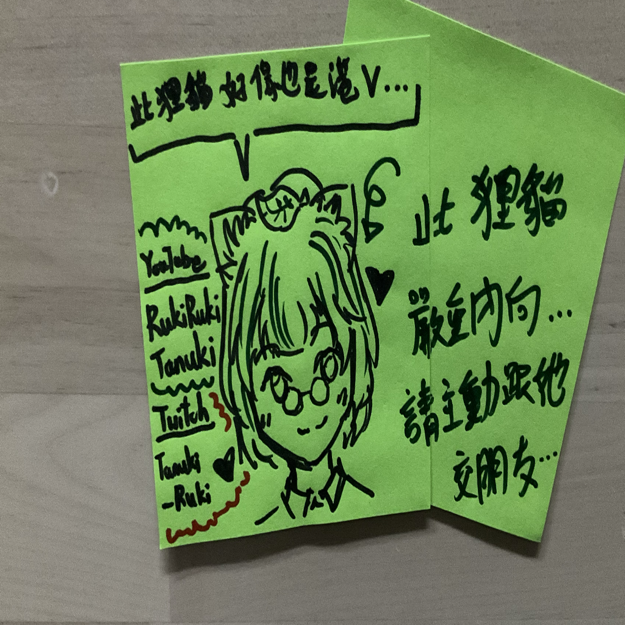 此狸貓 好像也是港V...
YouTube
RukiRuki
Tanuki
Twitch
Tanuki
-Ruki
此狸貓
嚴重內向...
請主動跟他
交朋友...